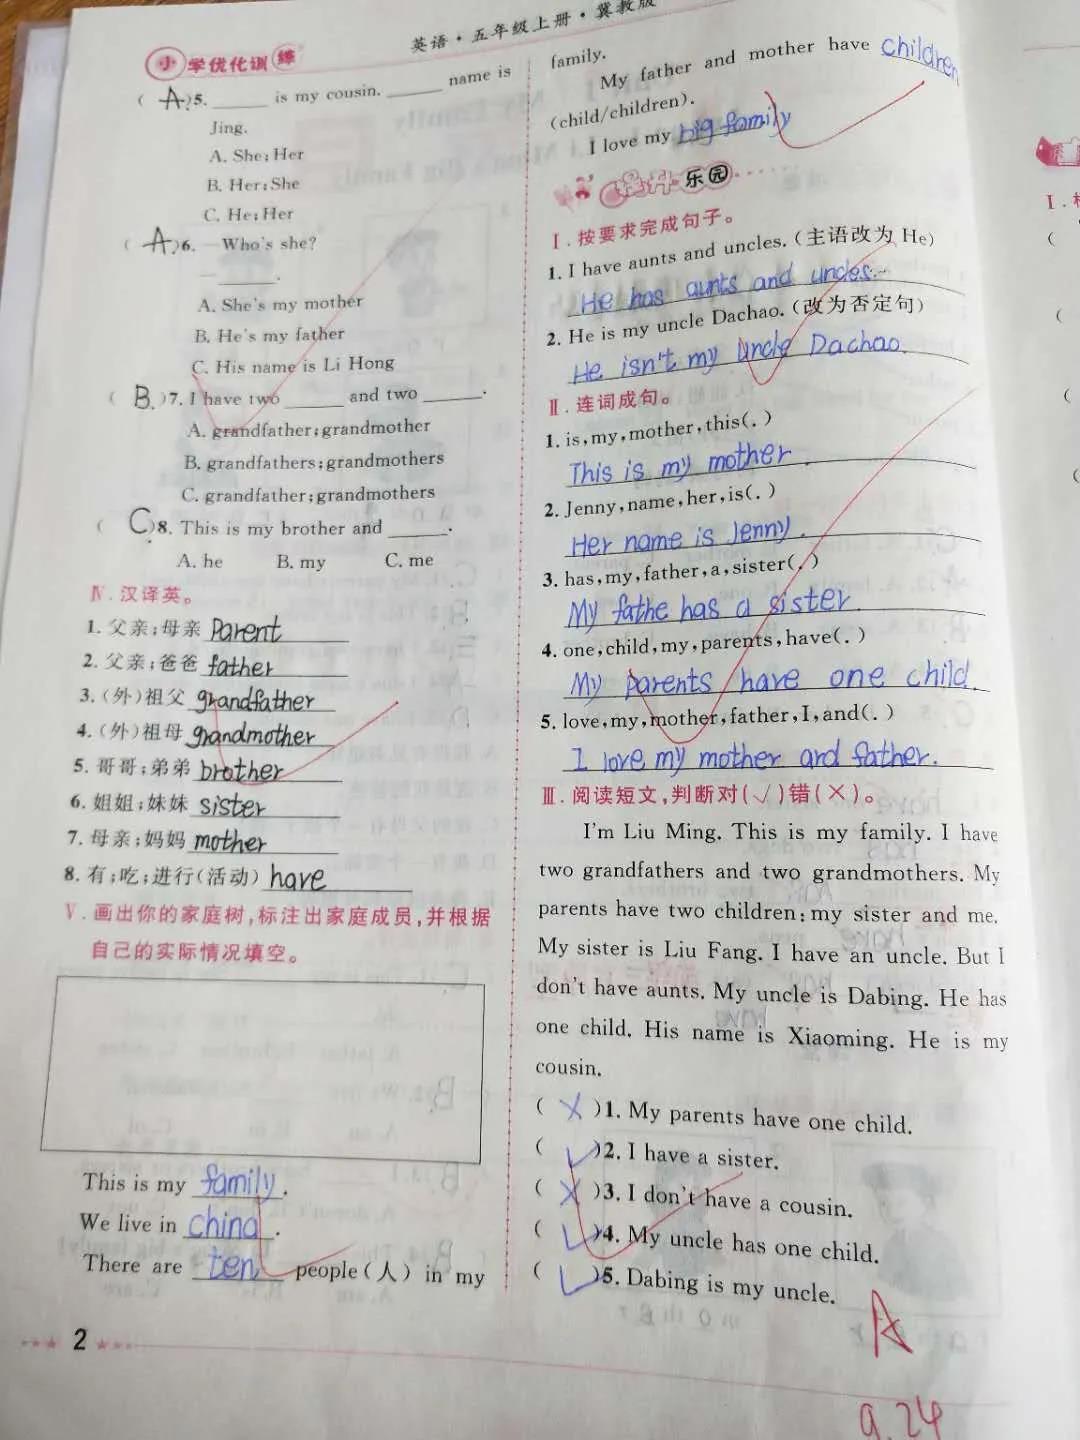 小学优化训练
英语·五年级上册·冀教版
( A )5. ______ is my cousin. ______ name is
Jing.
A. She; Her
B. Her; She
C. He; Her
( A )6. —Who's she?
— ______.
A. She's my mother
B. He's my father
C. His name is Li Hong
( B )7. I have two ______ and two ______.
A. grandfather; grandmother
B. grandfathers; grandmothers
C. grandfather; grandmothers
( C )8. This is my brother and ______.
A. he B. my C. me
Ⅳ. 汉译英。
1. 父亲;母亲 Parent
2. 父亲;爸爸 father
3. (外)祖父 grandfather
4. (外)祖母 grandmother
5. 哥哥;弟弟 brother
6. 姐姐;妹妹 sister
7. 母亲;妈妈 mother
8. 有;吃;进行(活动) have
Ⅴ. 画出你的家庭树,标注出家庭成员,并根据
自己的实际情况填空。
This is my family.
We live in china.
There are ten people(人) in my
2
family.
My father and mother have children
(child/children).
I love my big family
提升乐园
Ⅰ. 按要求完成句子。
1. I have aunts and uncles. (主语改为 He)
He has aunts and uncles.
2. He is my uncle Dachao. (改为否定句)
He isn't my uncle Dachao.
Ⅱ. 连词成句。
1. is, my, mother, this(.)
This is my mother.
2. Jenny, name, her, is(.)
Her name is Jenny.
3. has, my, father, a, sister(.)
My fathe has a sister.
4. one, child, my, parents, have(.)
My parents have one child.
5. love, my, mother, father, I, and(.)
I love my mother and father.
Ⅲ. 阅读短文,判断对(√)错(×)。
I'm Liu Ming. This is my family. I have
two grandfathers and two grandmothers. My
parents have two children: my sister and me.
My sister is Liu Fang. I have an uncle. But I
don't have aunts. My uncle is Dabing. He has
one child. His name is Xiaoming. He is my
cousin.
( × )1. My parents have one child.
( √ )2. I have a sister.
( × )3. I don't have a cousin.
( √ )4. My uncle has one child.
( √ )5. Dabing is my uncle.
A
9.24